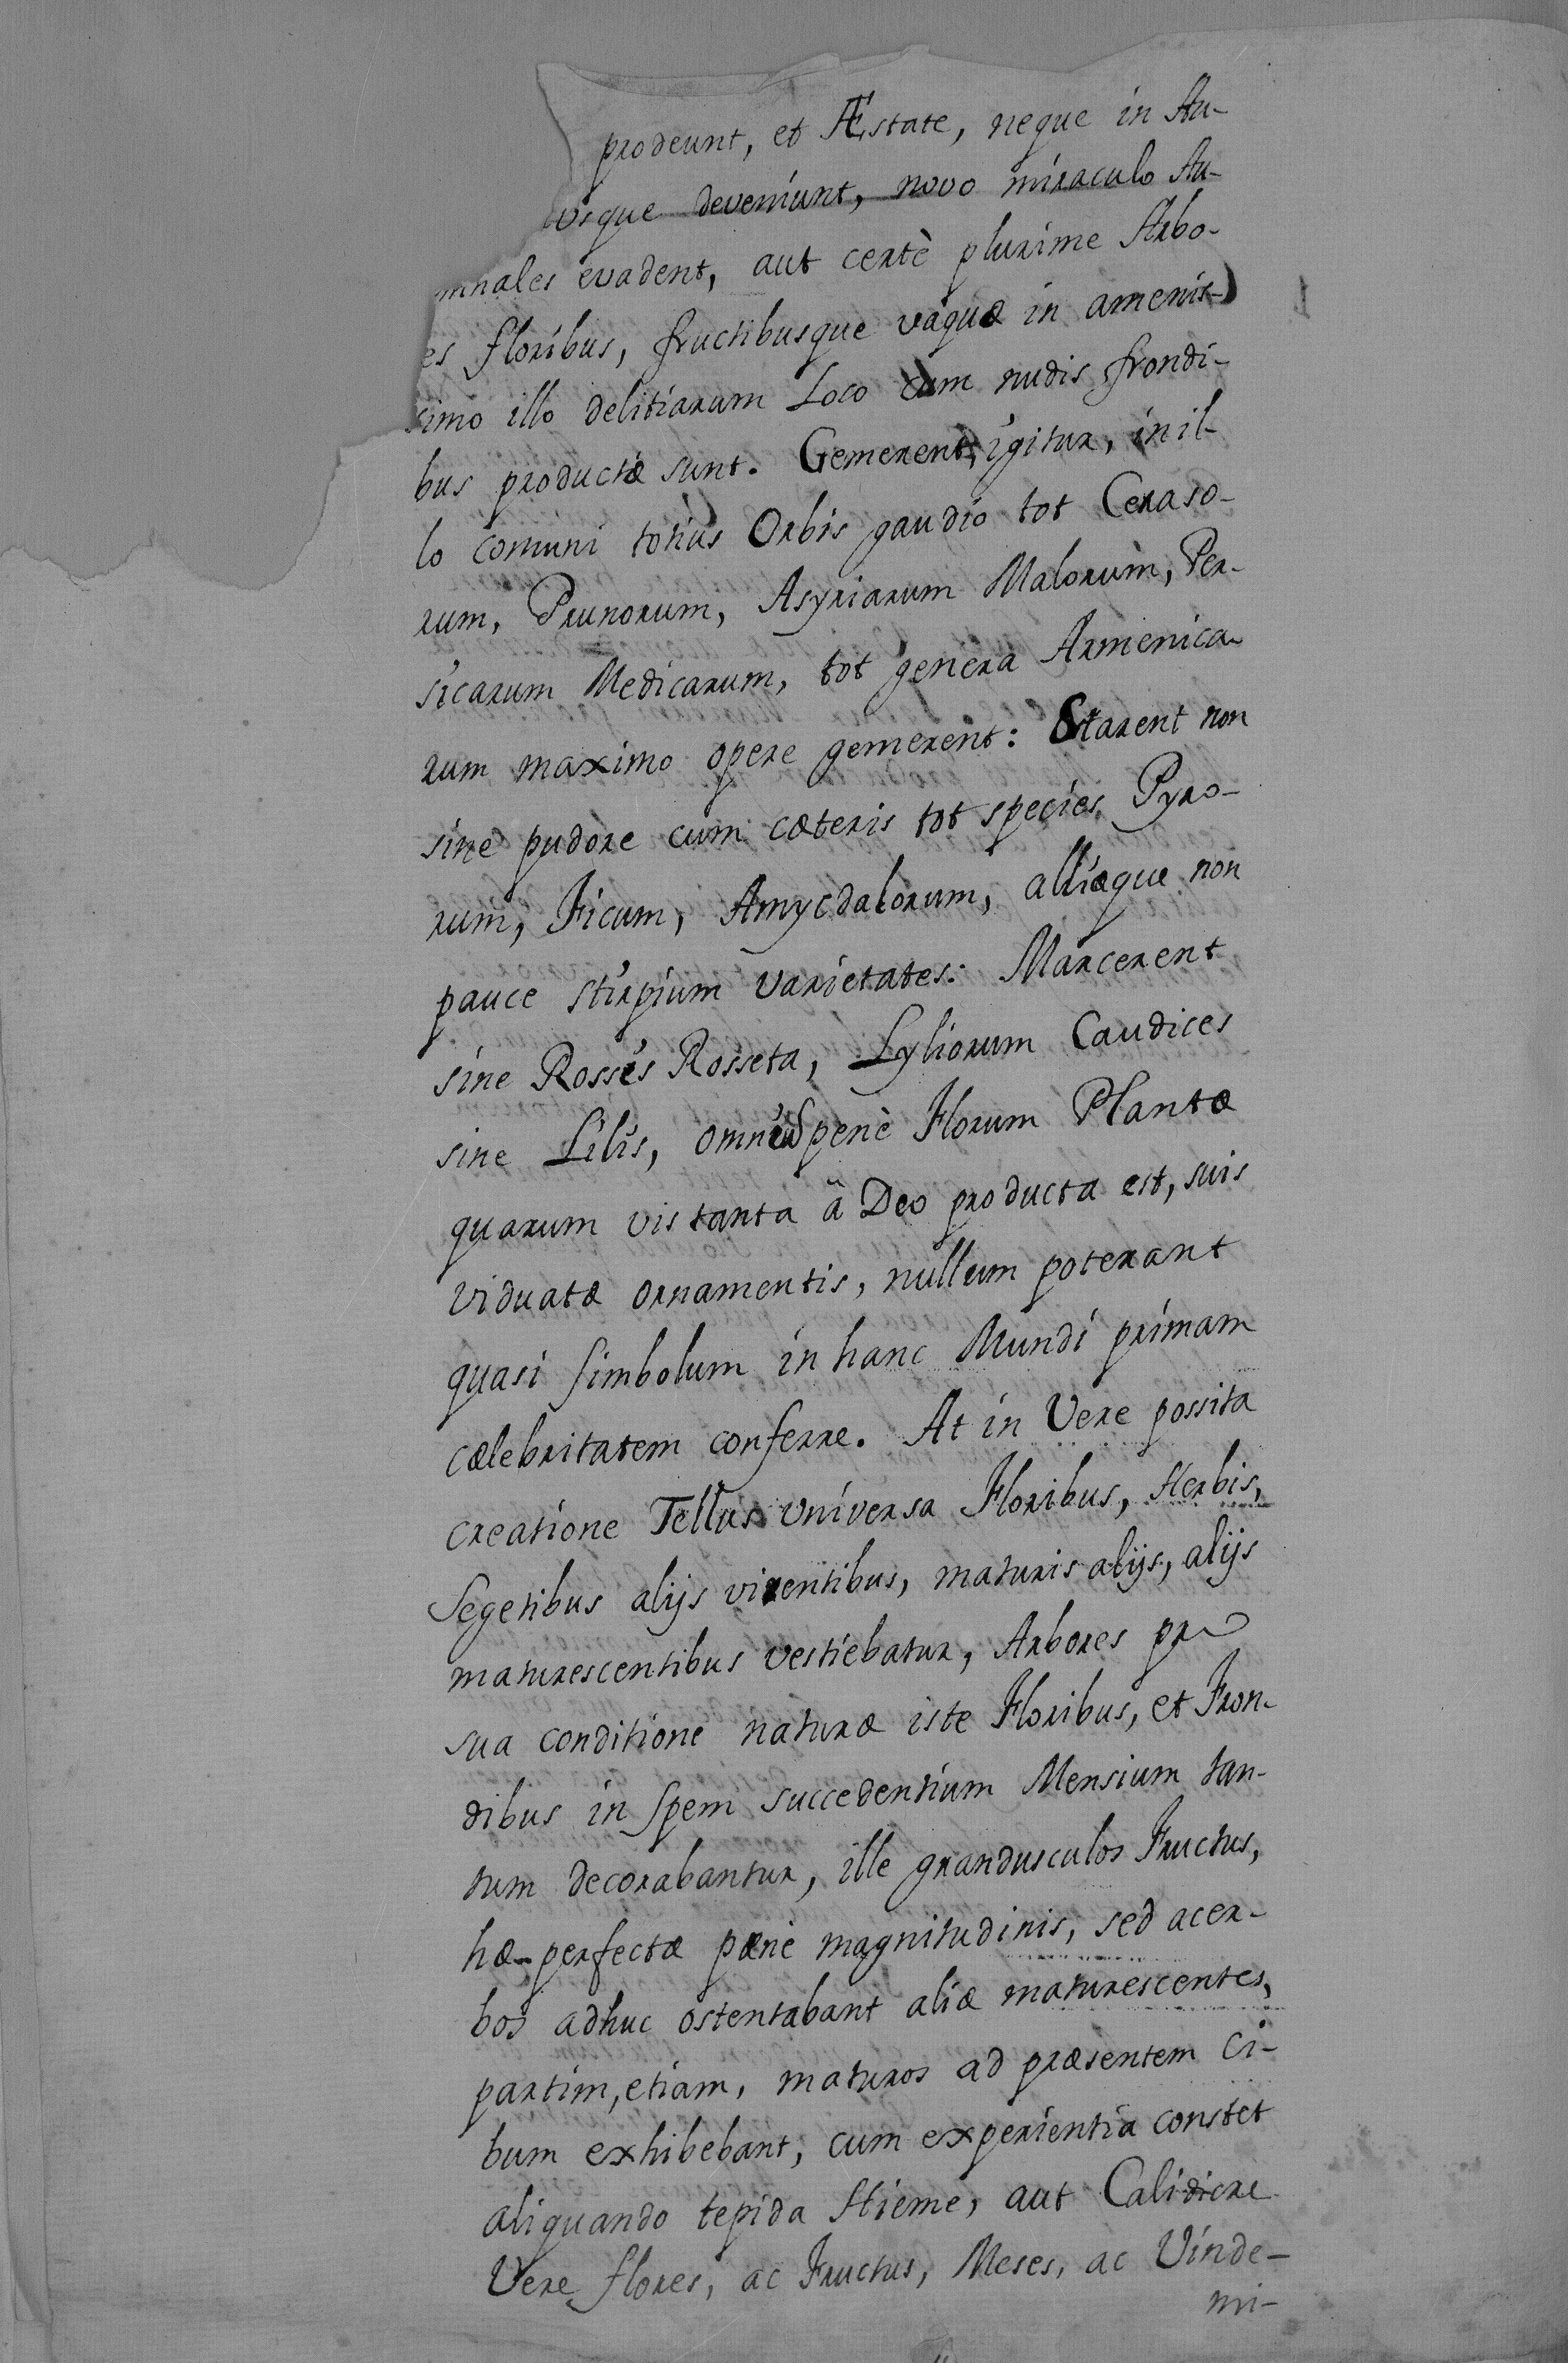 prodeunt, et Æstate, neque in Au-
usque deveniunt, novo miraculo Au-
mnales evadent, aut certè plurime Arbo-
es floribus, fructibusque vaquæ in amenis-
simo illo delitiarum Loco cum nudis frondi-
bus productæ sunt. Gemerent, igitur, in il-
lo comuni totius Orbis gaudio tot Ceraso-
rum, Prunorum, Asyriarum Malorum, Per-
sicarum Medicarum, tot genera Armenica-
rum maximo opere gemerent: Starent non
sine pudore cum cæteris tot species Pyro-
rum, Ficum, Amycdalorum, alliæque non
pauce stirpium varietates: Marcerent
sine Rossis Rosseta, Lyliorum Caudices
sine Liliis, penè Florum Plantæ
quarum vis tanta â Deo producta est, suis
viduatæ ornamentis, nullum poterant
quasi Simbolum in hanc Mundi primam
cælebritatem conferre. At in Vere possita
creatione Tellus universa Floribus, Herbis,
Segetibus alijs virentibus, maturis alijs, alijs
maturescentibus vestiebatur, Arbores pro
sua conditione naturæ iste Floribus, et Fron-
dibus in Spem succedentium Mensium tan-
tum decorabantur, ille grandusculos Fructus,
hæ perfectæ pæne magnitudinis, sed acer-
bos adhuc ostentabant aliæ maturescentes,
partim, etiam, maturos ad præsentem Ci-
bum exhibebant, cum experientia constet
aliquando tepida Hieme, aut Calidiore
Vere flores, ac Fructus, Meses, ac Vinde-
mi-